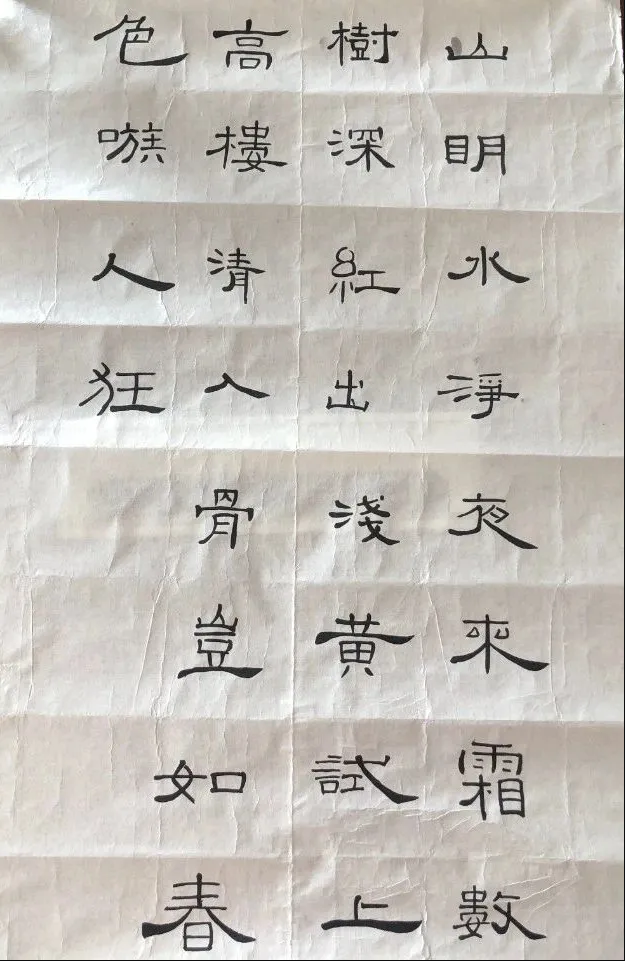 山明水淨夜來霜數
樹深紅出淺黃試上
高樓清入骨豈如春
色嗾人狂